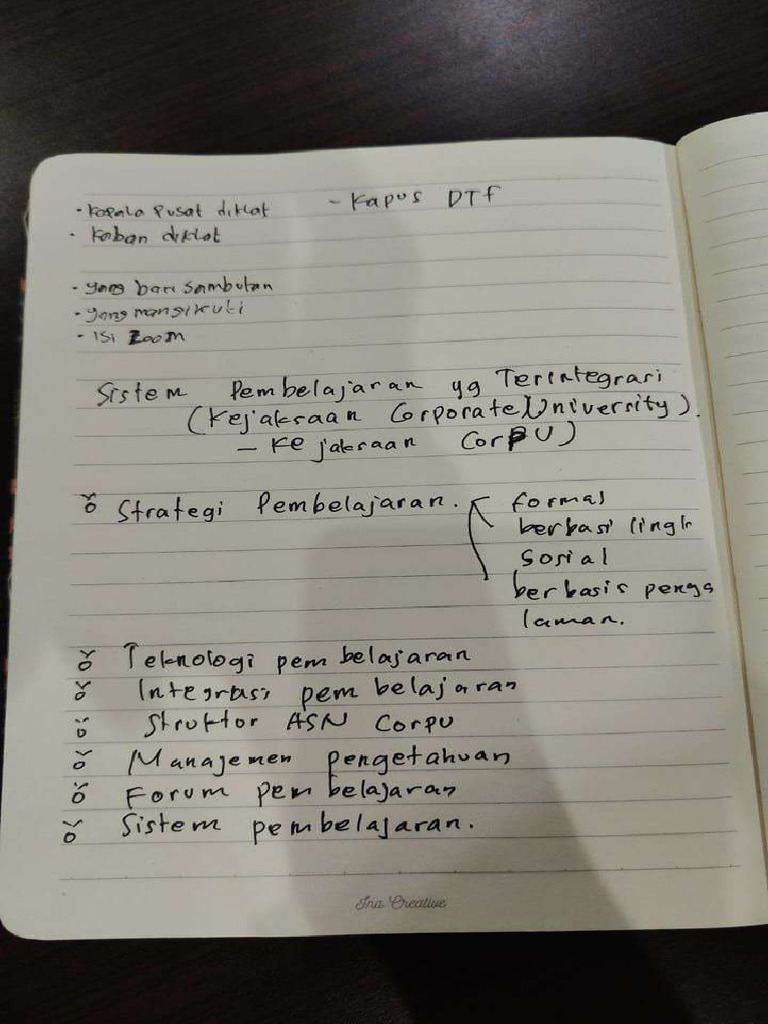 · kepala pusat diklat - Kapus DTF
· kaban diklat
· yang beri sambutan
· yang mengikuti
· isi zoom
Sistem Pembelajaran yg Terintegrasi
(Kejaksaan Corporate University).
- Kejaksaan CorpU)
Strategi Pembelajaran. formas
berbasi lingk
Sosial
berbasis penga
laman.
Teknologi pembelajaran
Integrasi pembelajaran
Struktor ASN Corpu
Manajemen pengetahuan
Forum pembelajaran
Sistem pembelajaran.
Ina Creative